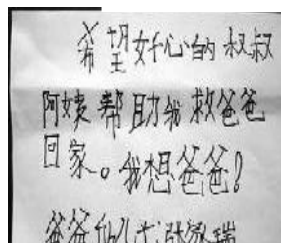 希望好心的叔叔
阿姨帮助我救爸爸
回家。我想爸爸!
爸爸